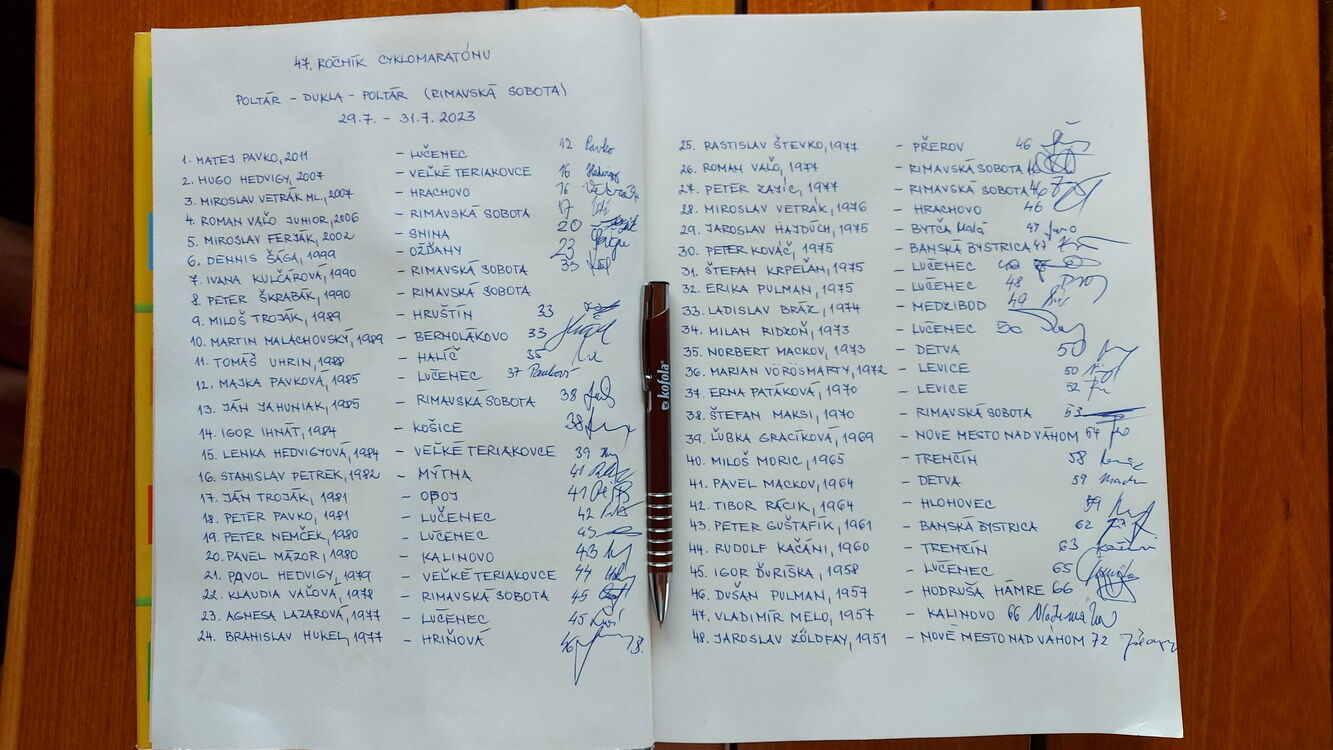 47. ROČNÍK CYKLOMARATÓNU
POLTÁR - DUKLA - POLTÁR (RIMAVSKÁ SOBOTA)
29.7. - 31.7. 2023
1. MATEJ PAVKO, 2011 - LUČENEC 12 Pavko
2. HUGO HEDVIGY, 2007 - VEĽKÉ TERIAKOVCE 16
3. MIROSLAV VETRÁK ML., 2007 - HRACHOVO 16
4. ROMAN VAĽO JUNIOR, 2006 - RIMAVSKÁ SOBOTA 17
5. MIROSLAV FERJÁK, 2002 - SNINA 20
6. DENNIS ŠÁGA, 1999 - OŽĎANY 23
7. IVANA KULČÁROVÁ, 1990 - RIMAVSKÁ SOBOTA 33
8. PETER ŠKRABÁK, 1990 - RIMAVSKÁ SOBOTA
9. MILOŠ TROJÁK, 1989 - HRUŠTÍN 33
10. MARTIN MALACHOVSKÝ, 1989 - BERNOLÁKOVO 33
11. TOMÁŠ UHRIN, 1988 - HALÍČ 35
12. MAJKA PAVKOVÁ, 1985 - LUČENEC 37 Pavková
13. JÁN JAHUNIAK, 1985 - RIMAVSKÁ SOBOTA 38
14. IGOR IHNÁT, 1984 - KOŠICE 38
15. LENKA HEDVIGYOVÁ, 1984 - VEĽKÉ TERIAKOVCE 39
16. STANISLAV PETREK, 1982 - MÝTNA 41
17. JÁN TROJÁK, 1981 - 41
18. PETER PAVKO, 1981 - LUČENEC 42
19. PETER NEMČEK, 1980 - LUČENEC 43
20. PAVEL MÁZOR, 1980 - KALINOVO 43
21. PAVOL HEDVIGY, 1979 - VEĽKÉ TERIAKOVCE 44
22. KLAUDIA VAĽOVÁ, 1978 - RIMAVSKÁ SOBOTA 45
23. AGNESA LAZAROVÁ, 1977 - LUČENEC 45
24. BRANISLAV HUKEL, 1977 - HRIŇOVÁ 46
25. RASTISLAV ŠTEVKO, 1977 - PŘEROV 46
26. ROMAN VAĽO, 1977 - RIMAVSKÁ SOBOTA
27. PETER ZAJÍC, 1977 - RIMAVSKÁ SOBOTA 46
28. MIROSLAV VETRÁK, 1976 - HRACHOVO 46
29. JAROSLAV HAJDÚCH, 1975 - BYTČA Malá 47 Jaro
30. PETER KOVÁČ, 1975 - BANSKÁ BYSTRICA 47
31. ŠTEFAN KRPEĽAN, 1975 - LUČENEC
32. ERIKA PULMAN, 1975 - LUČENEC 48
33. LADISLAV BRÁZ, 1974 - MEDZIBOD 49
34. MILAN RIDZOŇ, 1973 - LUČENEC 50
35. NORBERT MACKOV, 1973 - DETVA 50
36. MARIAN VÖRÖSMARTY, 1972 - LEVICE 50
37. ERNA PATÁKOVÁ, 1970 - LEVICE 52
38. ŠTEFAN MAKSI, 1970 - RIMAVSKÁ SOBOTA 53
39. ĽUBKA GRACÍKOVÁ, 1969 - NOVE MESTO NAD VÁHOM 54
40. MILOŠ MORIC, 1965 - TRENČÍN 58
41. PAVEL MACKOV, 1964 - DETVA 59
42. TIBOR RÁCIK, 1964 - HLOHOVEC 59
43. PETER GUŠTAFÍK, 1961 - BANSKÁ BYSTRICA 62
44. RUDOLF KAČÁNI, 1960 - TRENČÍN 63
45. IGOR ĎURIŠKA, 1958 - LUČENEC 65
46. DUŠAN PULMAN, 1957 - HODRUŠA HÁMRE 66
47. VLADIMÍR MELO, 1957 - KALINOVO 66
48. JAROSLAV ZÖLDFAY, 1951 - NOVÉ MESTO NAD VÁHOM 72
kofola